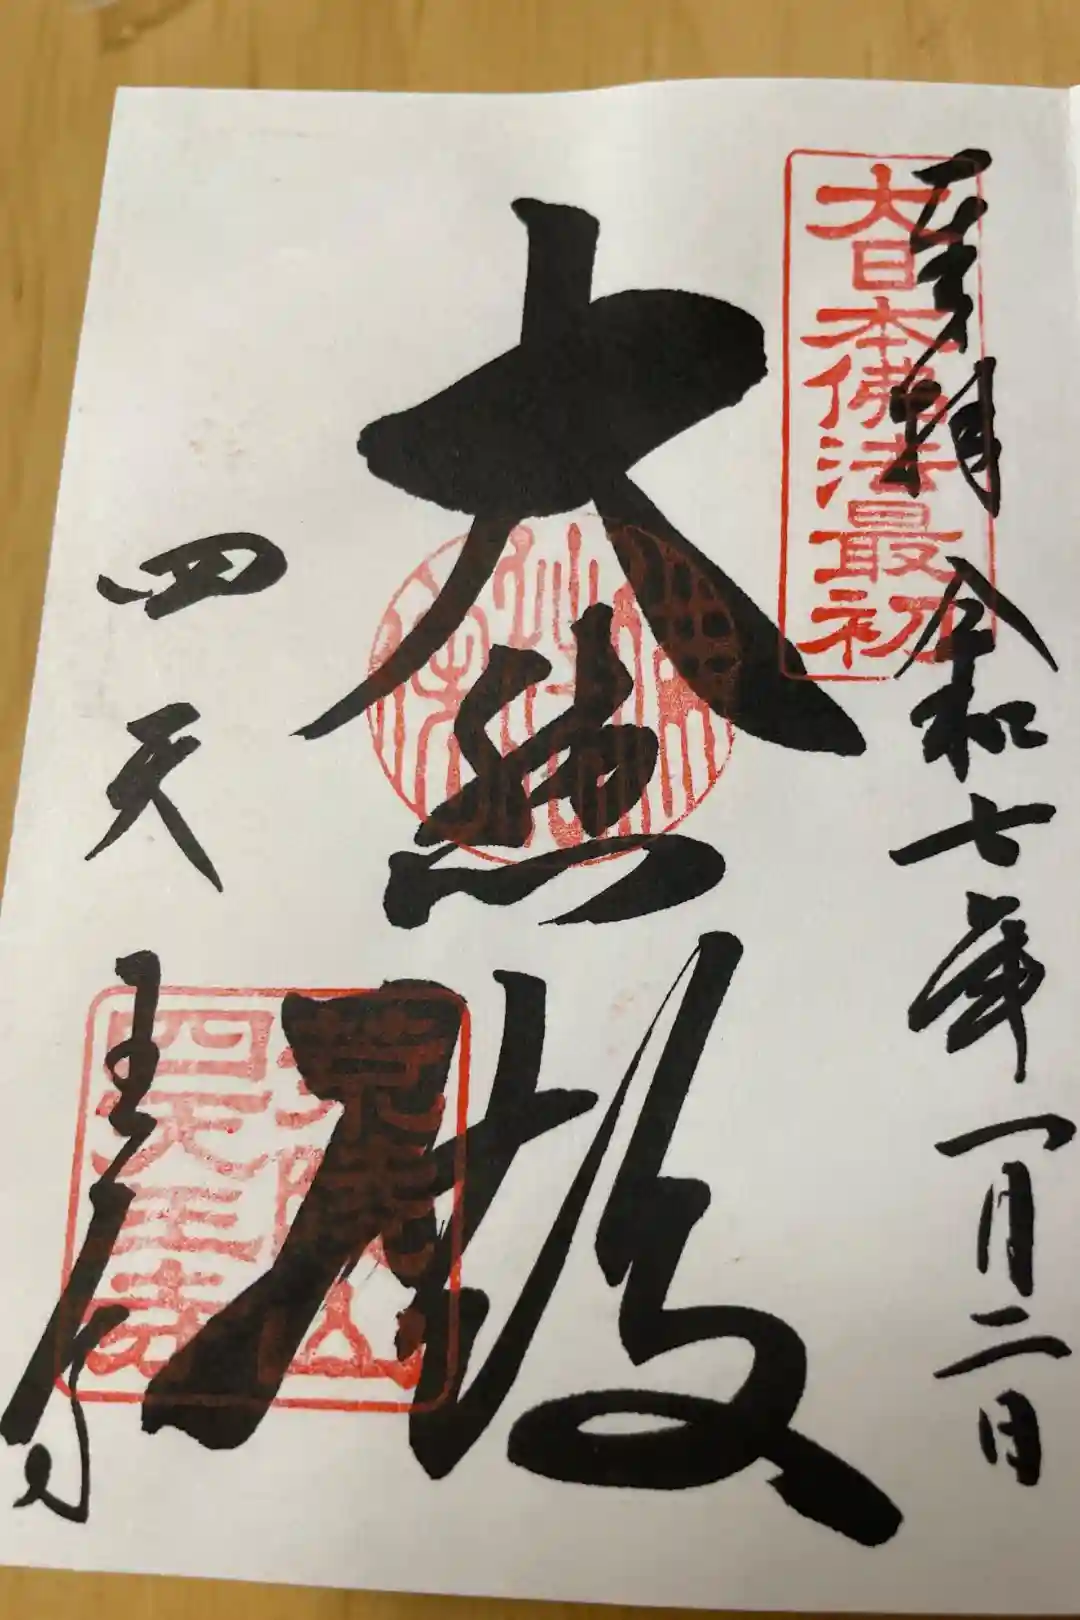 奉拝 令和七年一月二日
大日本佛法最初
大悲殿
四天王寺
荒陵山
四天王寺